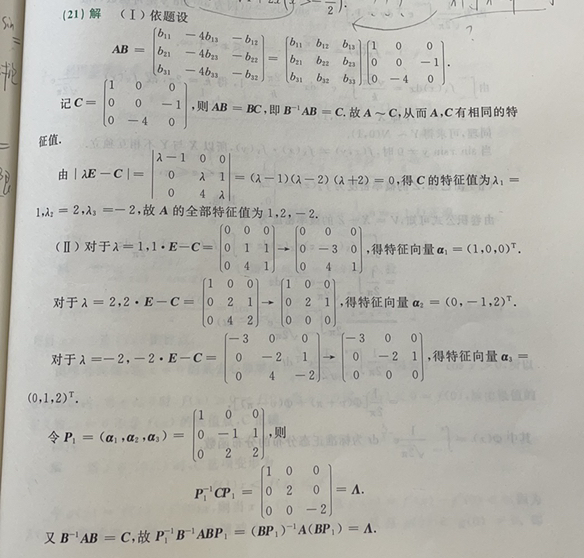 (21) 解 (Ⅰ) 依题设
AB = [b₁₁ −4b₁₃ −b₁₂; b₂₁ −4b₂₃ −b₂₂; b₃₁ −4b₃₃ −b₃₂] = [b₁₁ b₁₂ b₁₃; b₂₁ b₂₂ b₂₃; b₃₁ b₃₂ b₃₃] [1 0 0; 0 0 −1; 0 −4 0].
记 C = [1 0 0; 0 0 −1; 0 −4 0], 则 AB = BC, 即 B⁻¹AB = C. 故 A ~ C, 从而 A, C 有相同的特
征值.
由 | λE − C | = |λ−1 0 0; 0 λ 1; 0 4 λ| = (λ−1)(λ−2)(λ+2) = 0, 得 C 的特征值为 λ₁ =
1, λ₂ = 2, λ₃ = −2, 故 A 的全部特征值为 1, 2, −2.
(Ⅱ) 对于 λ = 1, 1·E − C = [0 0 0; 0 1 1; 0 4 1] → [0 0 0; 0 −3 0; 0 4 1], 得特征向量 α₁ = (1,0,0)ᵀ.
对于 λ = 2, 2·E − C = [1 0 0; 0 2 1; 0 4 2] → [1 0 0; 0 2 1; 0 0 0], 得特征向量 α₂ = (0,−1,2)ᵀ.
对于 λ = −2, −2·E − C = [−3 0 0; 0 −2 1; 0 4 −2] → [−3 0 0; 0 −2 1; 0 0 0], 得特征向量 α₃ =
(0,1,2)ᵀ.
令 P₁ = (α₁, α₂, α₃) = [1 0 0; 0 −1 1; 0 2 2], 则
P₁⁻¹CP₁ = [1 0 0; 0 2 0; 0 0 −2] = Λ.
又 B⁻¹AB = C, 故 P₁⁻¹B⁻¹ABP₁ = (BP₁)⁻¹A(BP₁) = Λ.